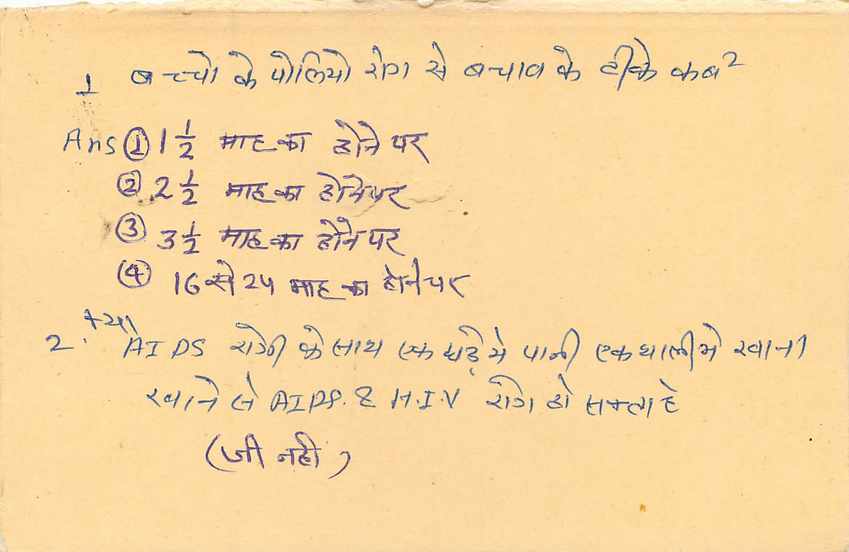 1 बच्चो के पोलियो रोग से बचाव के टीके कब ?
Ans ① 1 1/2 माह का होने पर
② 2 1/2 माह का होने पर
③ 3 1/2 माह का होने पर
④ 16 से 24 माह का होने पर
2. क्या AIDS रोगी के साथ एक घड़े मे पानी एक थाली मे खाना
खाने से AIDS. & H.I.V रोग हो सकता है
(जी नही)